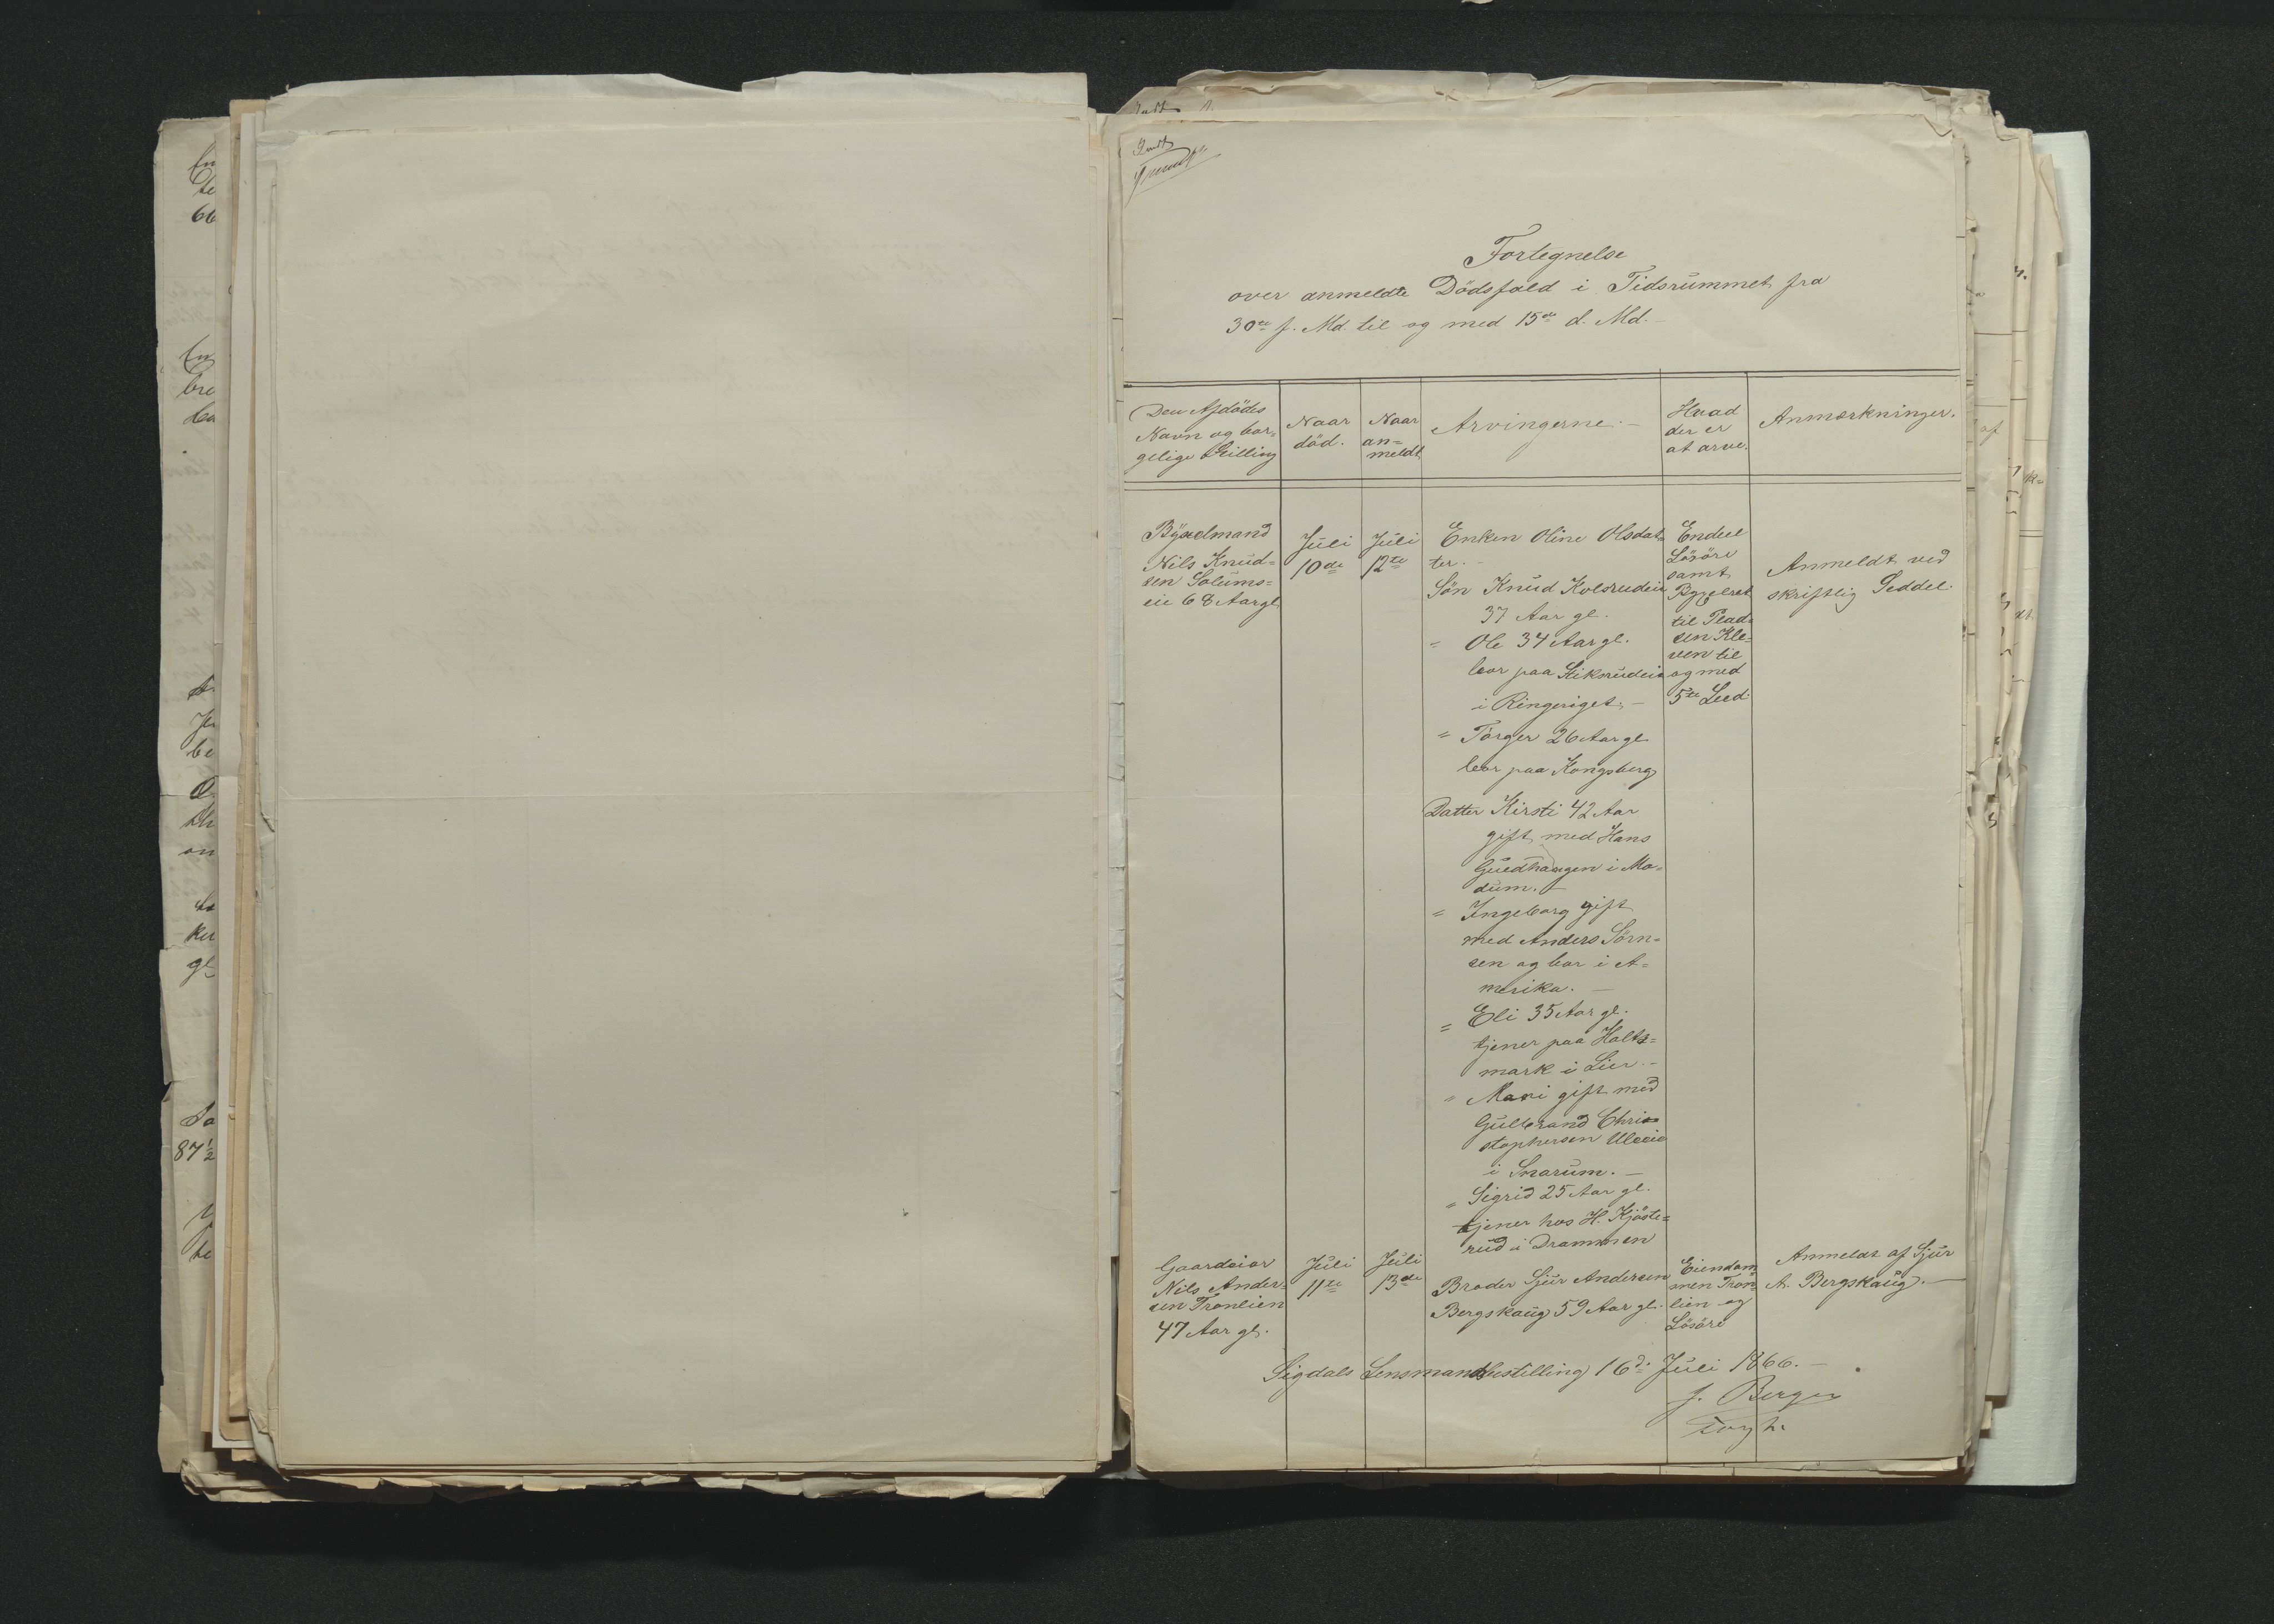 Fortegnelse
over anmeldte Dödsfald i Tidsrummet fra
30te f. Md. til og med 15de d. Md. -
Den Afdödes
Navn og bor-
gelige Stilling
Naar
död.
Naar
an-
meldt
Arvingerne. -
Hvad
der er
at arve.
Anmærkninger.
Byxelmand
Nils Knud-
sen Solums-
eie 68 Aar gl.
Juli
10de
Juli
12te
Enken Oline Olsdat-
ter. -
Sön Knud Kolsrudeie
37 Aar gl.
" Ole 34 Aar gl.
boer paa Stiksrudeie
i Ringeriget. -
" Torger 26 Aar gl
boer paa Kongsberg
Datter Kirsti 42 Aar
gift med Hans
Guldhaugen i Mo-
dum. -
" Ingeborg gift
med Anders Sörn-
sen og bor i A-
merika. -
" Eli 35 Aar gl.
tjener paa Holts-
mark i Lier. -
" Mari gift med
Gulbrand Chris-
stophersen
i Snarum. -
" Sigrid 25 Aar gl.
tjener hos H. Kjöste-
rud i Drammen
Endeel
Lösöre
samt
Bygselret
til Plad-
sen Kle-
ven til
og med
5te Led.
Anmeldt ved
skriftlig Seddel.
Gaardeier
Nils Ander-
sen Tronlien
47 Aar gl.
Juli
11te
Juli
13de
Broder Sjur Andersen
Bergskaug 59 Aar gl.
Eiendom
men Tron-
lien og
Lösöre
Anmeldt af Sjur
A. Bergskaug. -
Sigdals Lensmandsbestilling 16d. Juli 1866. -
J. Berger